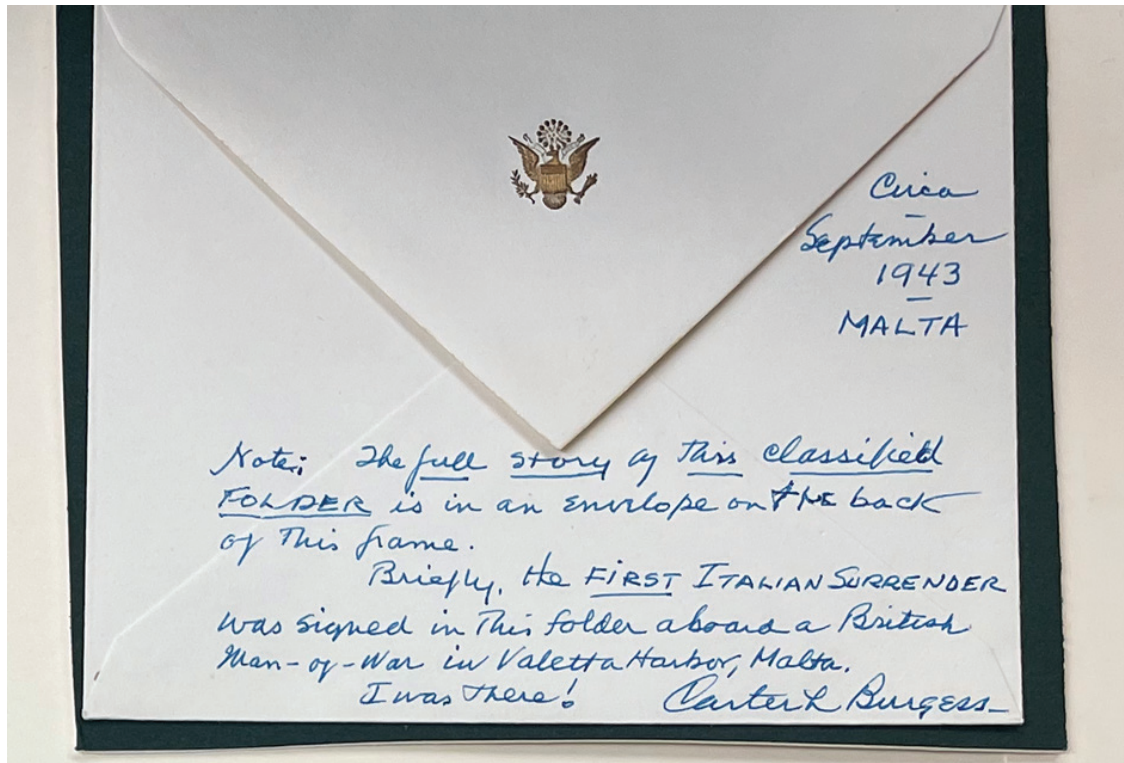 Circa
–
September
1943
–
MALTA
Note: The full story of This classified
FOLDER is in an envelope on THE back
of This frame.
Briefly, the FIRST ITALIAN SURRENDER
was signed in This folder aboard a British
Man-of-War in Valetta Harbor, Malta.
I was There! Carter L Burgess